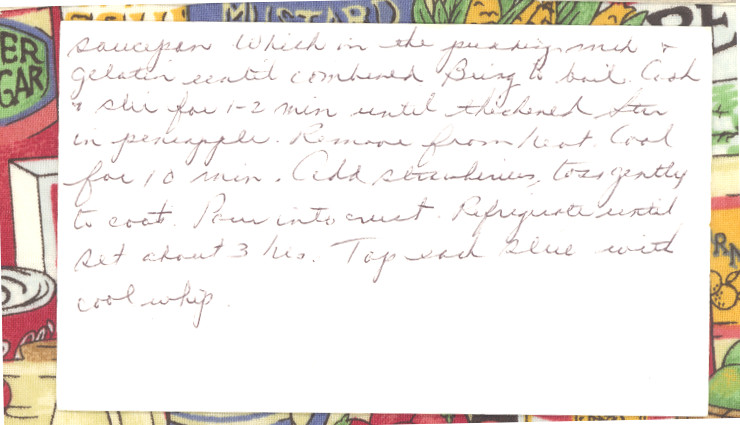 MUSTARD
saucepan Which in the pudding mix &
ER
GAR
gelatin until combined Bring to boil. Cook
& stir for 1-2 min until thickened Stir
in peneapple. Remove from heat. Cool
for 10 min. Add strawberries, toss gently
to coat. Pour into crust. Refrigerate until
set about 3 hrs. Top each slice with
cool whip.
RN